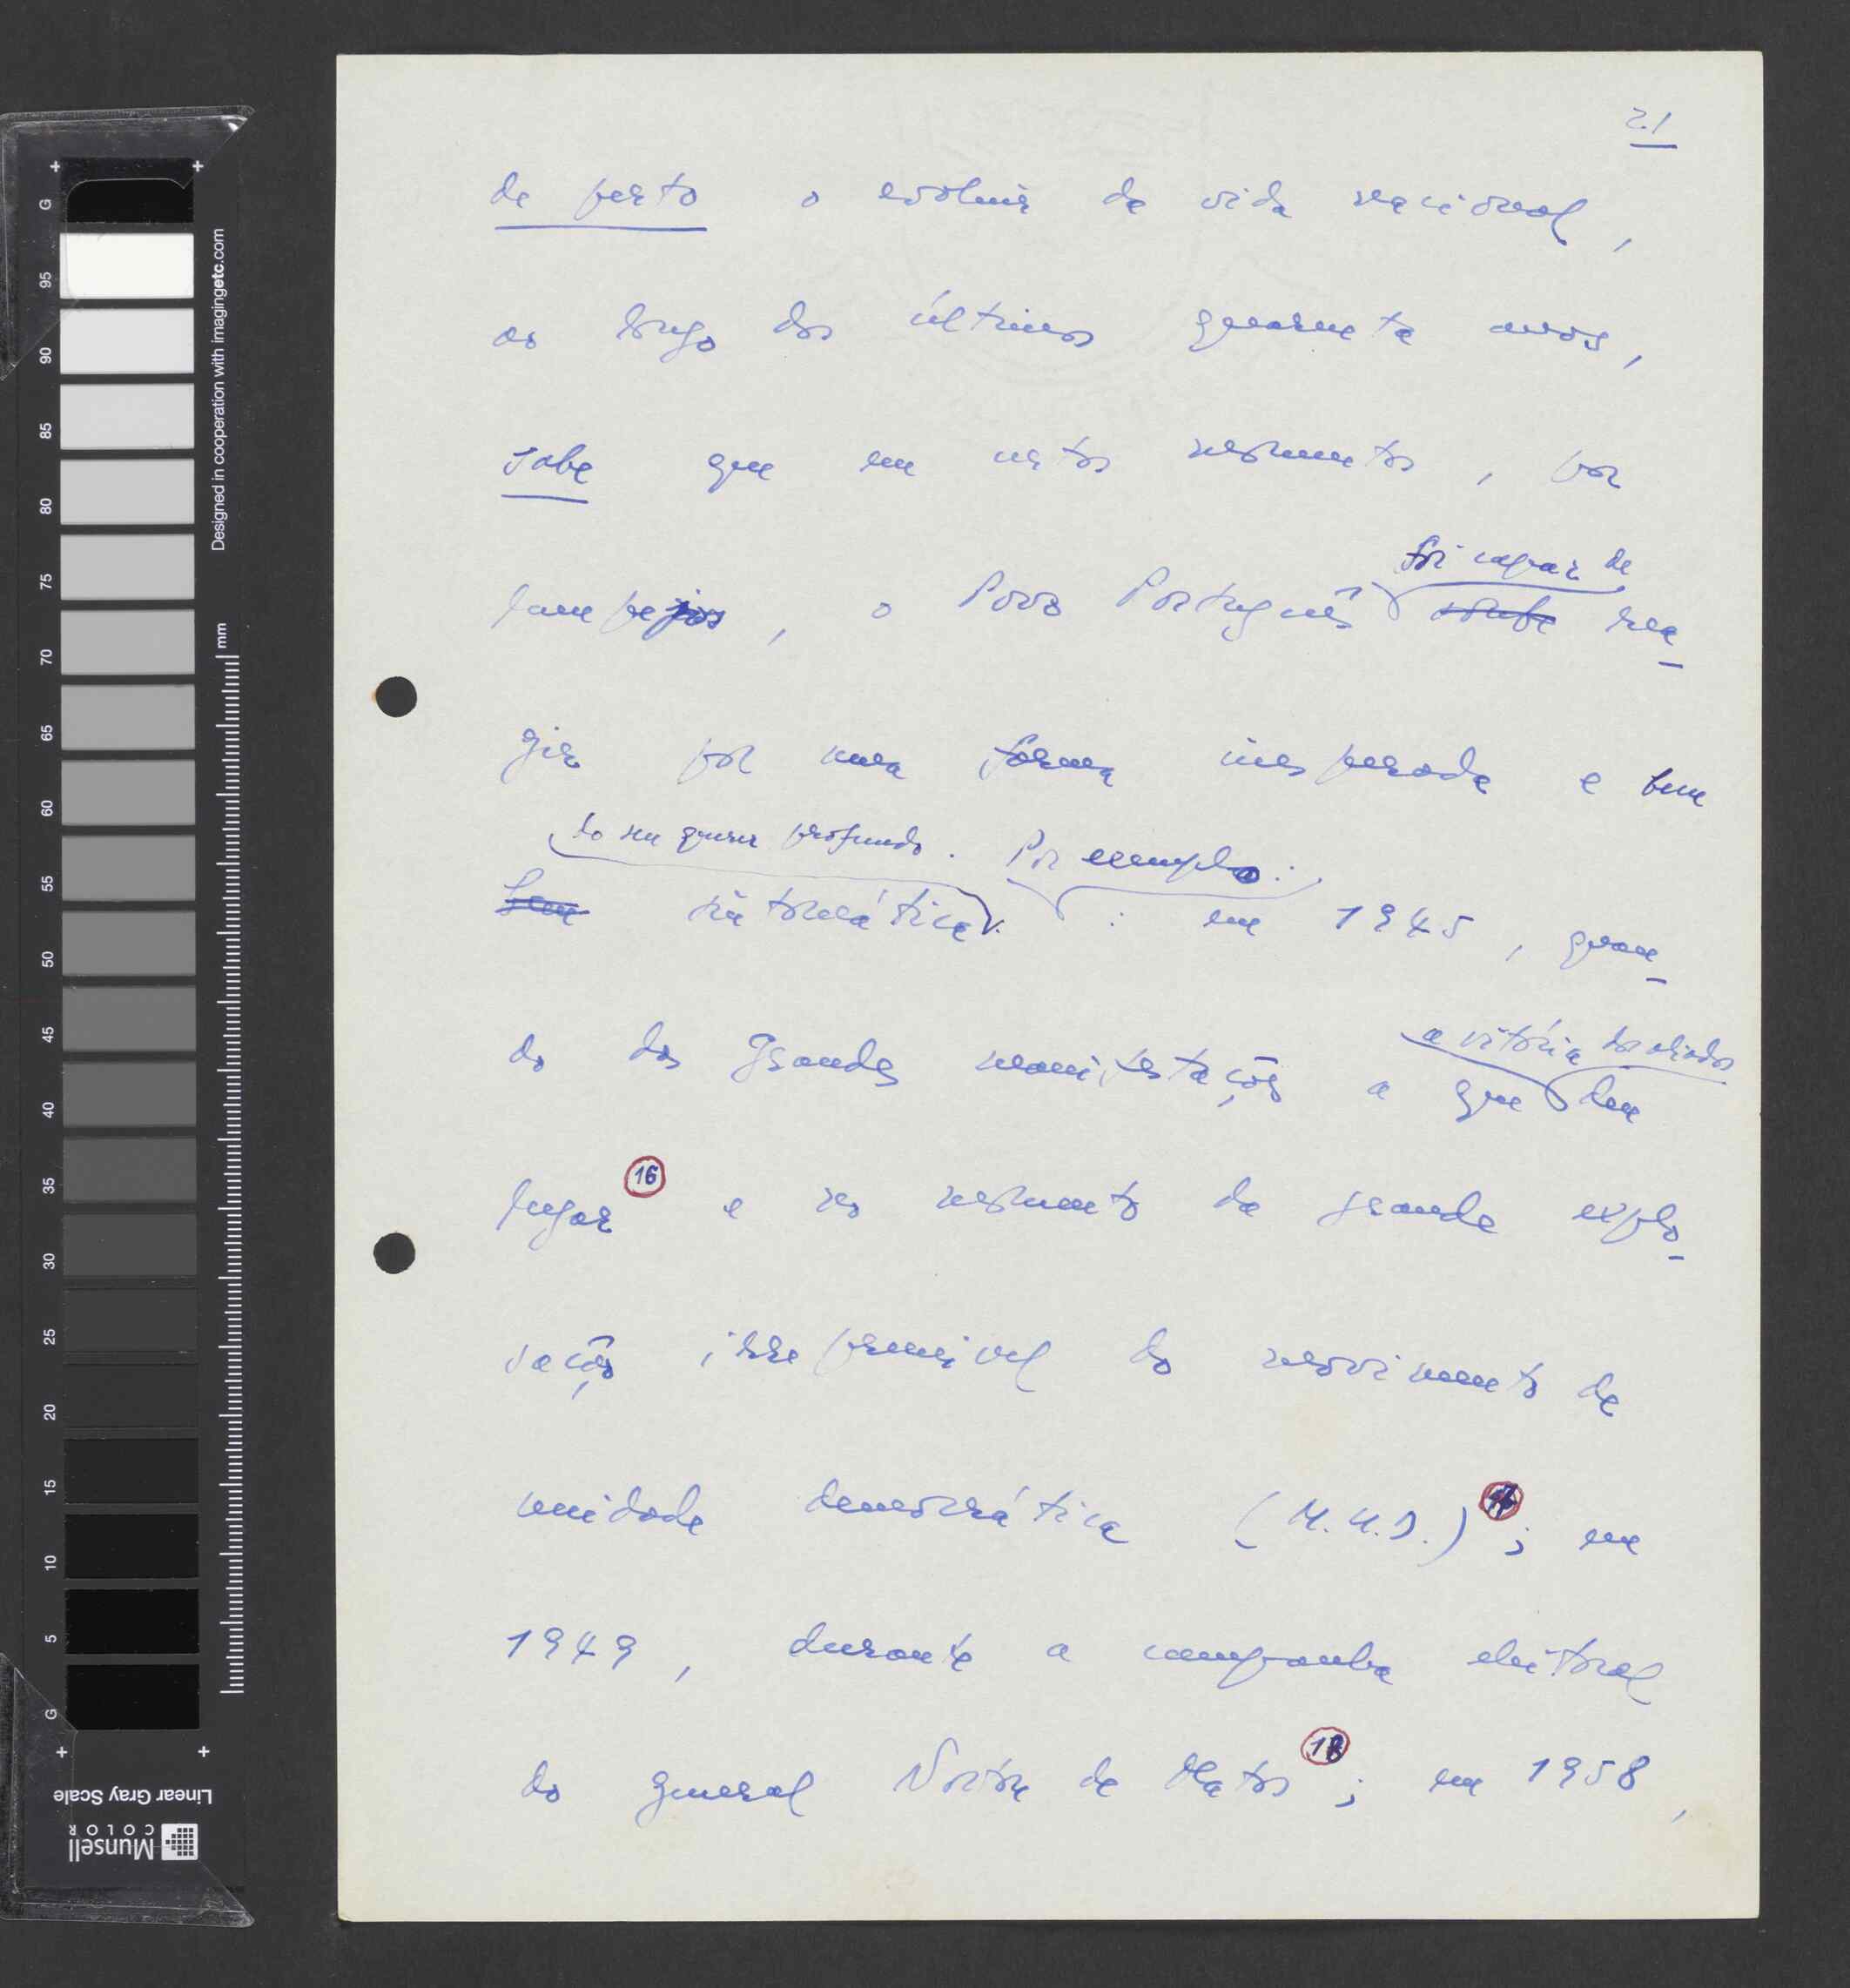 21
de perto o evoluir da vida nacional,
ao longo dos últimos quarenta anos,
sabe que em certos momentos, por
foi capaz de
lampejos, o Povo Português soube rea-
gir por uma forma inesperada e bem
do seu querer profundo. Por exemplo:
sintomática : em 1945, quan-
a vitória dos aliados
do das grandes manifestações a que deu
lugar 16 e no momento da grande explo-
sação irreprimível do movimento de
unidade democrática (M.U.D.) 17; em
1949, durante a campanha eleitoral
do general Norton de Matos 18; em 1958,
Designed in cooperation with imagingetc.com
mm
G 95 90 85 80 75 70 65 60 55 50 45 40 35 30 25 20 15 10 5 G
Linear Gray Scale
Munsell
COLOR